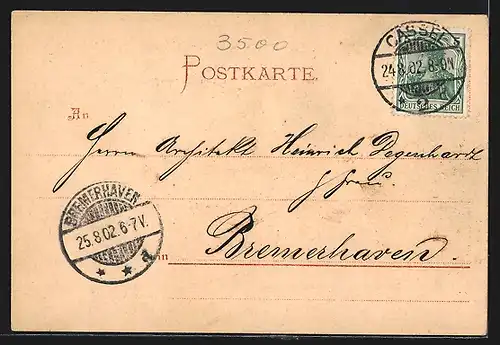 3500
CASSEL 5
24.8.02.8-9N
DEUTSCHES REICH
POSTKARTE.
An
Herrn Architekt Heinrich Degenhardt
Frau
BREMERHAVEN
25.8.02.6-7V.
d
in Bremerhaven.